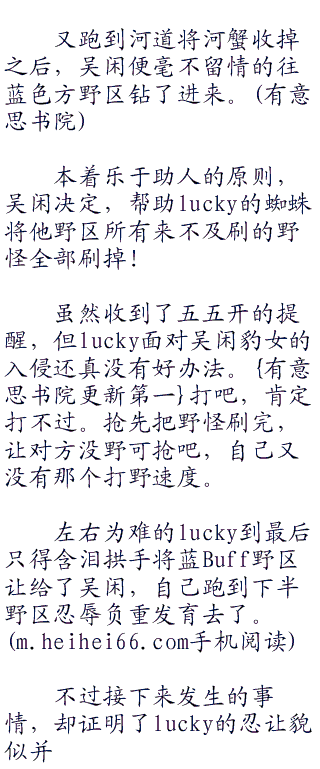 又跑到河道将河蟹收掉
之后，吴闲便毫不留情的往
蓝色方野区钻了进来。(有意
思书院)
本着乐于助人的原则，
吴闲决定，帮助lucky的蜘蛛
将他野区所有来不及刷的野
怪全部刷掉!
虽然收到了五五开的提
醒，但lucky面对吴闲豹女的
入侵还真没有好办法。{有意
思书院更新第一}打吧，肯定
打不过。抢先把野怪刷完，
让对方没野可抢吧，自己又
没有那个打野速度。
左右为难的lucky到最后
只得含泪拱手将蓝Buff野区
让给了吴闲，自己跑到下半
野区忍辱负重发育去了。
(m.heihei66.com手机阅读)
不过接下来发生的事
情，却证明了lucky的忍让貌
似并